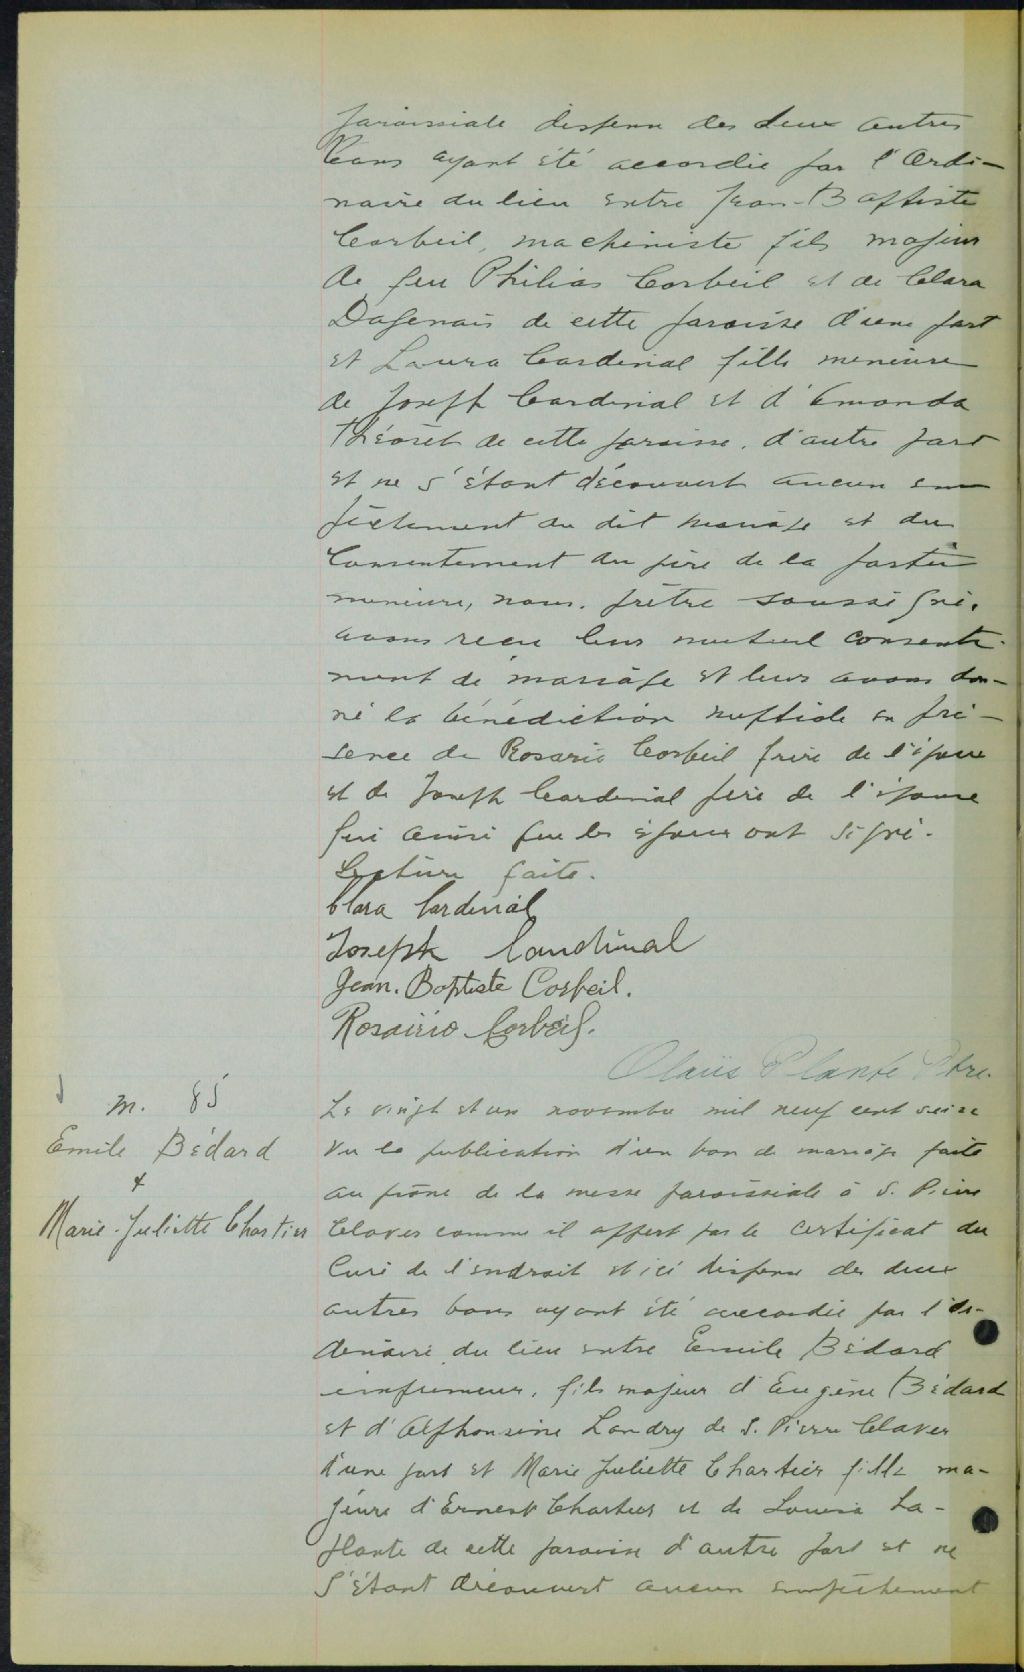 paroissiale dispense des deux autres
bans ayant été accordée par l'Ordi-
naire du lieu entre Jean-Baptiste
Corbeil, machiniste fils majeur
de feu Philias Corbeil et de Clara
Dagenais de cette paroisse d'une part
et Laura Cardinal fille mineure
de Joseph Cardinal et d'Emonda
Théorêt de cette paroisse. d'autre part
et ne s'étant découvert aucun em
pêchement au dit mariage et du
Consentement du père de la partie
mineure, nous. prêtre soussigné.
avons reçu leur mutuel consente-
ment de mariage et leur avons don-
né la bénédiction nuptiale en pré-
sence de Rosario Corbeil frère de l'époux
et de Joseph Cardinal père de l'épouse
qui ainsi que les époux ont signé.
Lecture faite.
Clara Cardinal
Joseph Cardinal
Jean. Baptiste Corbeil.
Rosairio Corbeil.
Olaüs Plante Ptre.
m. 85
Emile Bédard
&
Marie-Juliette Chartier
Le vingt et un novembre mil neuf cent seize
vu la publication d'un ban de mariage faite
au prône de la messe paroissiale à S. Pierre
Claver comme il appert par le certificat du
Curé de l'endroit et ici dispense des deux
autres bans ayant été accordée par l'Or-
dinaire du lieu entre Emile Bédard
imprimeur, fils majeur d'Eugène Bédard
et d'Alphonsine Landry de S. Pierre Claver
d'une part et Marie Juliette Chartier fille ma-
jeure d'Ernest Chartier et de Louisa La-
plante de cette paroisse d'autre part et ne
s'étant découvert aucun empêchement